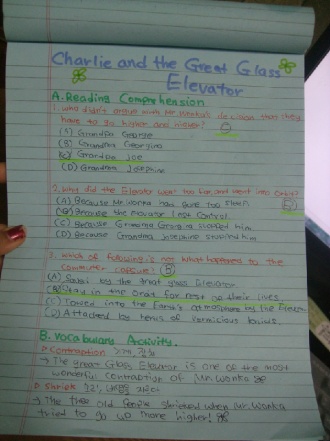 Charlie and the Great Glass
Elevator
A. Reading Comprehension
1. Who didn't argue with Mr. Wonka's decision that they
have to go higher and higher?
(A) Grandpa George
(B) Grandma Georgina
(C) Grandpa Joe
(D) Grandma Josephine
2. Why did the Elevator went too far and went into Orbit?
(A) Because Mr. Wonka has gone too
(B) Because the Elevator Not Control
(C) Because Grandma Georgina stopped him
(D) Because Grandma Josephine stopped him
3. Which of following is not what happened to the
commuter capsule? (B)
(A) Saved by the great glass Elevator
(B) in the Orbit for rest of their lives
(C) Towed into the Earth's atmosphere by the
(D) Attacked by of vermicious knids.
B. Vocabulary Activity.
① Contraption
→ The great Glass Elevator is one of the most
wonderful contraption of Mr. Wonka
② Shriek
→ The three old people shrieked when Mr. Wonka
tried to go up more higher!